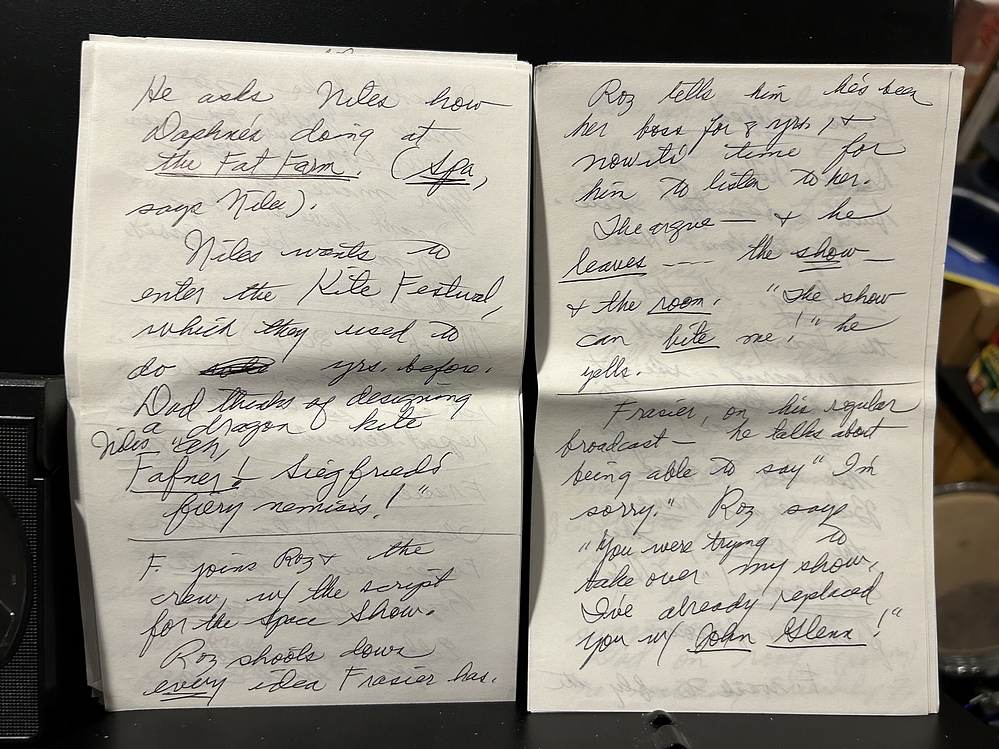 He asks Niles how
Daphne's doing at
the Fat Farm. (Spa,
says Niles).
Niles wants to
enter the Kite Festival,
which they used to
do yrs. before.
Dad thinks of designing
a dragon kite
Niles "Oh,
Fafner! Siegfried's
fiery nemisis!"
F. joins Roz + the
crew, w/ the script
for the Space Show.
Roz shoots down
every idea Frasier has.
Roz tells him he's been
her boss for 8 yrs, +
now its' time for
him to listen to her.
The argue — + he
leaves —— the show —
+ the room. "The show
can bite me!" he
yells.
Frasier, on his regular
broadcast — he talks about
being able to say "I'm
sorry." Roz says
"You were trying to
take over my show,
I've already replaced
you w/ John Glenn!"